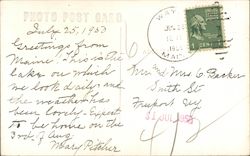 PHOTO POST CARD
July 25, 1953
Greetings from
Maine. This is the
lake on which
we look daily and
the weather has
been lovely. Expect
to be home on the
3rd of Aug
Mary
Mr and Mrs C
Smith St
Freeport
MAINE